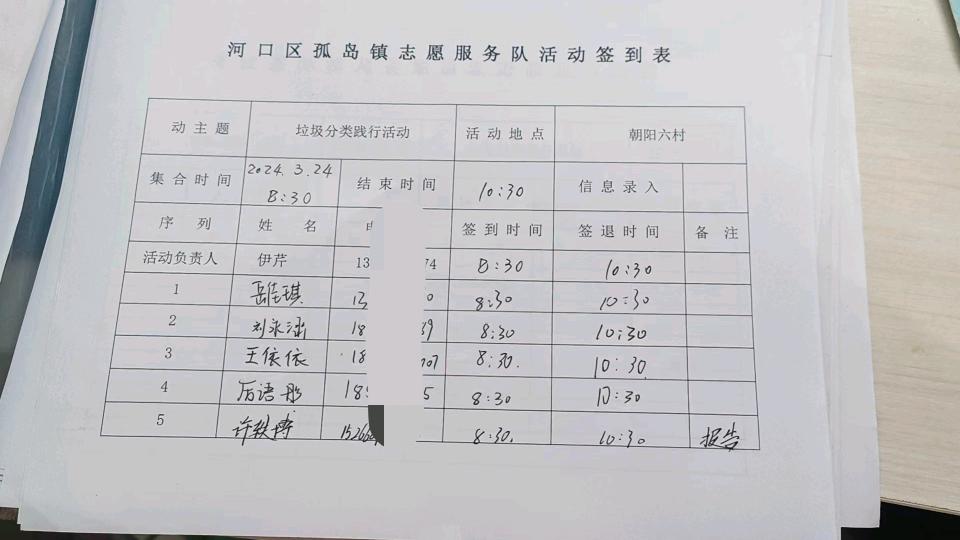 河口区孤岛镇志愿服务队活动签到表
动主题 垃圾分类践行活动 活动地点 朝阳六村
集合时间 2024.3.24 8:30 结束时间 10:30 信息录入
序列 姓名 签到时间 签退时间 备注
活动负责人 伊芹 13 74 8:30 10:30
1 岳佳琪 13 0 8:30 10:30
2 刘永涵 18 39 8:30 10:30
3 王依依 18 707 8:30. 10:30.
4 厉语彤 18 5 8:30 10:30
5 许轶博 15266 8:30. 10:30 报告